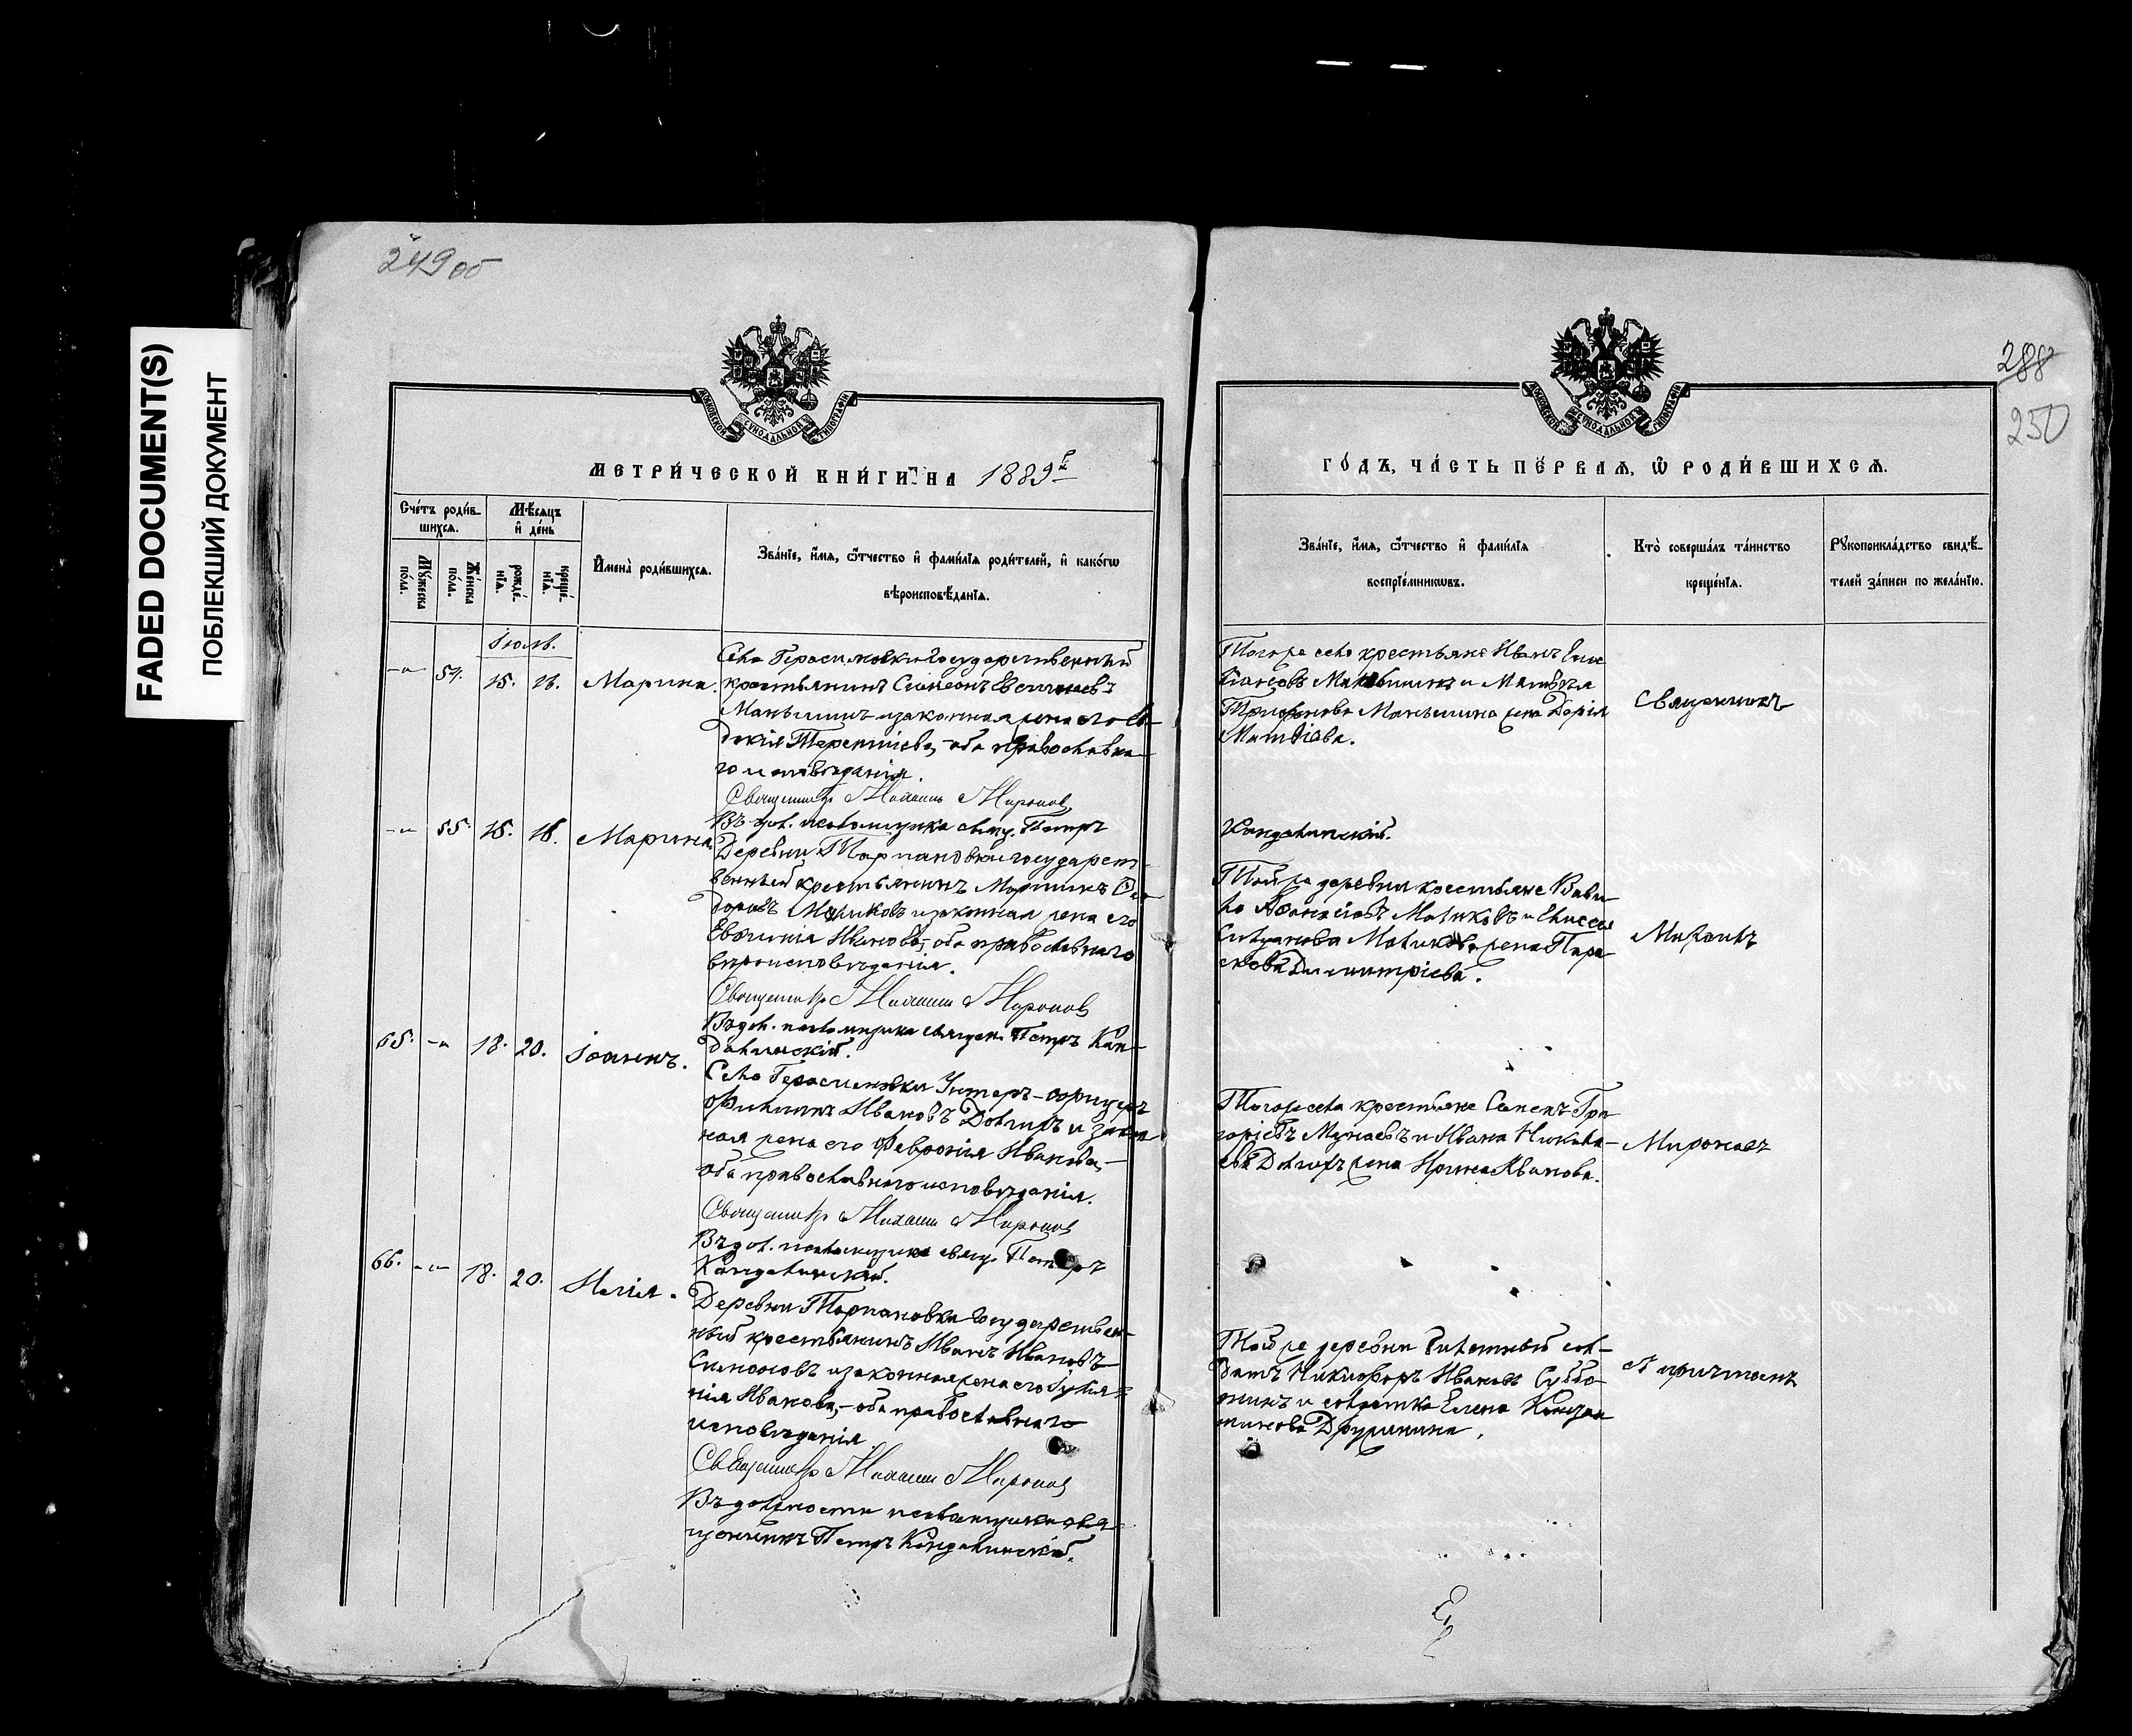 FADED DOCUMENT(S)
ПОБЛЕКШИЙ ДОКУМЕНТ
249 об
МЕТРИ́ЧЕСКОЙ КНИ́ГИ НА 1889 г
Сче́тъ роди́в-
шихсѧ.
Мѣ́сѧцъ
и҆ де́нь
Мꙋ́жеска
по́ла.
Же́нска
по́ла.
рожде́-
нїѧ.
креще́-
нїѧ.
И҆мена̀ роди́вшихсѧ.
Зва́нїе, и҆́мѧ, ѻ҆́тчество и҆ фами́лїѧ роди́телей, и҆ како́гѡ
вѣроисповѣ́данїѧ.
Іюль.
-"- 54. 15. 16. Марина.
Села Герасимовки государственный
крестьянинъ Симеонъ
Маньшинъ и законная жена его Ев-
докія Терентіева, - оба православна-
го исповѣданія.
Священникъ Михаилъ Миронов
Въ дол. псаломщика свящ. Петръ
-"- 55. 15. 16. Марина
Деревни Тарпановки государст-
венный крестьянинъ Мартинъ
и законная жена его
Евфимія Иванова, оба православнаго
вѣроисповѣданія.
Священникъ Михаилъ Миронов
Въ дол. псаломщика священ. Петръ Кан-
далинскій.
65. -"- 18. 20. Іоаннъ.
Села Герасимовки Унтеръ-офицеръ
Филиппъ Ивановъ и закон-
ная жена его Феврония Иванова, -
оба православнаго исповѣданія.
Священникъ Михаилъ Миронов
Въ дол. псаломщика свящ. Петръ
Кандалинскій.
66. -"- 18. 20. Илія.
Деревни Тарпановки государствен-
ный крестьянинъ Иванъ Ивановъ
Симоновъ и законная жена его Іуліа-
нія Иванова, - оба православнаго
исповѣданія
Священникъ Михаилъ Миронов
Въ должности псаломщика свя-
щенникъ Петръ Кандалинскій.
288
250
ГО́ДЪ, ЧА́СТЬ ПЕ́РВАѦ, Ѽ РОДИ́ВШИХСѦ.
Зва́нїе, и҆́мѧ, ѻ҆́тчество и҆ фами́лїѧ
воспрїе́мникѡвъ.
Кто̀ соверша́лъ та́инство
креще́нїѧ.
Рꙋкоприкла́дство свидѣ́-
телей за́писи по жела́нїю.
Того же села крестьяне Иванъ
Маньшинъ и Матвѣя
Трифонова Маньшина жена Дарія
Матвіева.
Священникъ
Кандалинскій.
Той же деревни крестьяне Вави-
ла Афанасіевъ и Елисея
жена Пара-
скова Димитріева.
Михаилъ
Того же села крестьяне Семенъ Гри-
горіевъ и Ивана Никола-
ева жена Ирина Иванова.
Мироновъ
Той же деревни билетный сол-
датъ Никифоръ Ивановъ Суббо-
тинъ и солдатка Елена Констан-
тинова Дружинина.
съ причтомъ